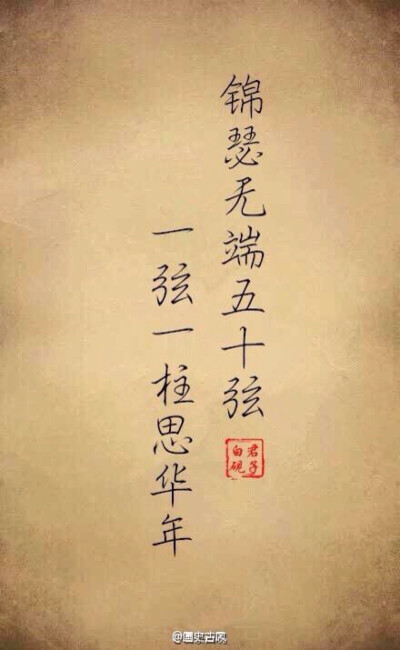 锦瑟无端五十弦
一弦一柱思华年
君子
白砚
@画史古风